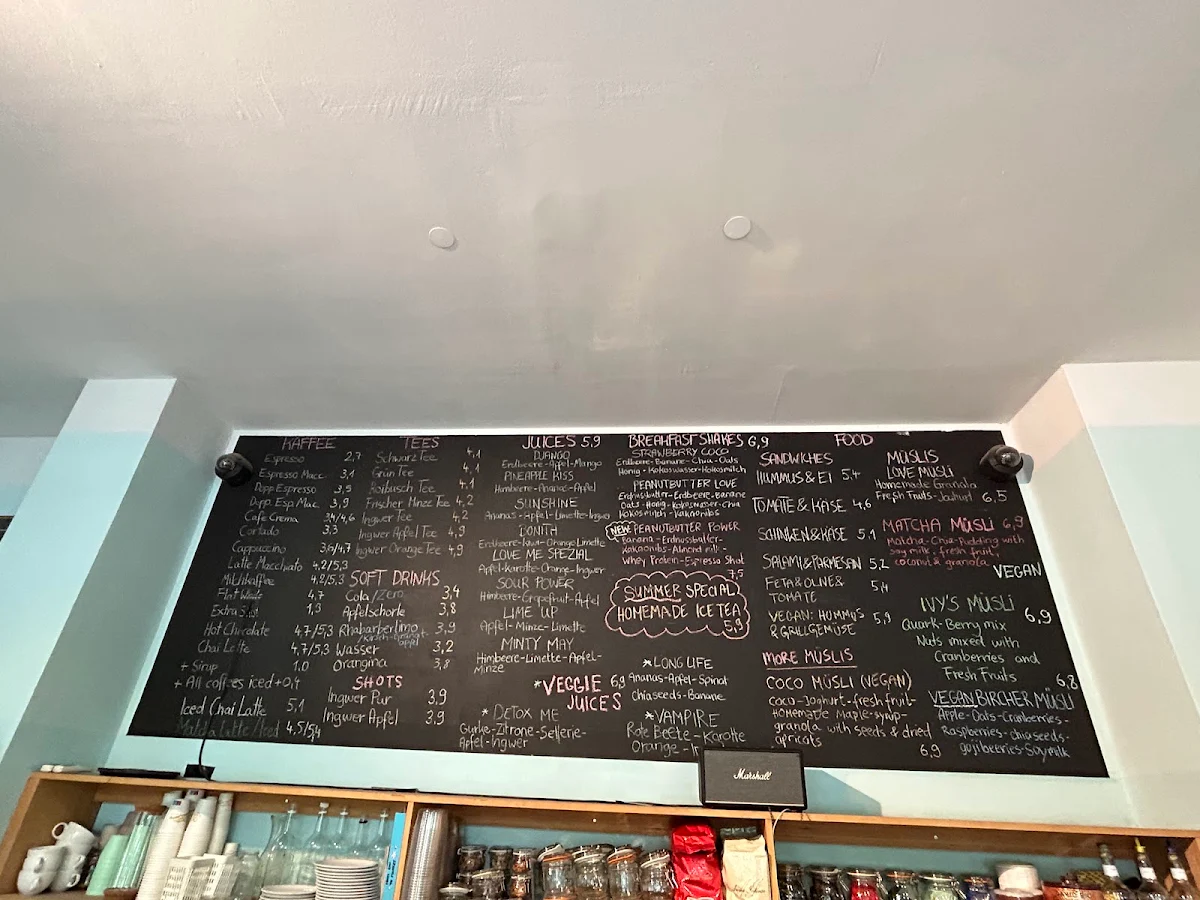 KAFFEE
Espresso 2,7
Espresso Macc. 3,1
Dopp Espresso 3,5
Dopp. Esp. Mac. 3,9
Cafe Crema 3,4/4,6
Cortado 3,3
Cappuccino 3,6/4,7
Latte Macchiato 4,2/5,3
Milchkaffee 4,2/5,3
Flat White 4,7
Extra 1,3
Hot Chocolate 4,7/5,3
Chai Latte 4,7/5,3
+ Sirup 1.0
+ All coffees iced +0,4
Iced Chai Latte 5,1
Matcha Latte/Iced 4,5/5,4
TEES
Schwarz Tee 4,1
Grün Tee 4,1
Roibusch Tee 4,1
Frischer Minze Tee 4,2
Ingwer Tee 4,2
Ingwer Apfel Tee 4,9
Ingwer Orange Tee 4,9
SOFT DRINKS
Cola/Zero 3,4
Apfelschorle 3,8
Rhabarberlimo 3,9
Wasser 3,2
Orangina 3,8
SHOTS
Ingwer Pur 3,9
Ingwer Apfel 3,9
JUICES 5,9
DJANGO
Erdbeere-Apfel-Mango
PINEAPPLE KISS
Himbeere-Ananas-Apfel
SUNSHINE
Ananas-Apfel-Limette-Ingwer
LOVE ME SPEZIAL
Apfel-Karotte-Orange-Ingwer
SOUR POWER
Himbeere-Grapefruit-Apfel
LIME UP
Apfel-Minze-Limette
MINTY MAY
Himbeere-Limette-Apfel-
Minze
*VEGGIE 6,9
JUICES
*DETOX ME
Gurke-Zitrone-Sellerie-
Apfel-Ingwer
BREAKFAST SHAKES 6,9
STRAWBERRY COCO
Erdbeere-Banane-Chia-Oats
Honig-Kokoswasser-Kokosmilch
PEANUTBUTTER LOVE
Erdnussbutter-Erdbeere-Banane
Oats-Honig-Kokoswasser-Chia
Kokosmilch-Kakaonibs
NEW PEANUTBUTTER POWER
Banana-Erdnussbutter-
Kakaonibs-Almond Milk-
Whey Protein-Espresso Shot
7,5
SUMMER SPECIAL
HOMEMADE ICE TEA
5,9
*LONG LIFE
Ananas-Apfel-Spinat
Chiaseeds-Banane
*VAMPIRE
Rote Beete-Karotte
Orange-
Marshall
FOOD
SANDWICHES
HUMMUS & EI 5,4
TOMATE & KÄSE 4,6
SCHINKEN & KÄSE 5,1
SALAMI & PARMESAN 5,2
FETA & OLIVE &
TOMATE 5,4
VEGAN: HUMMUS
& GRILLGEMÜSE 5,9
MORE MÜSLIS
COCO MÜSLI (VEGAN)
Coco-Joghurt-fresh fruit-
HOMEMADE Maple-syrup-
granola with seeds & dried
apricots 6,9
MÜSLIS
LOVE MÜSLI
Homemade Granola
Fresh Fruits-Joghurt 6,5
MATCHA MÜSLI 6,9
Matcha-Chia-Pudding with
soy milk, fresh fruit,
coconut & granola
VEGAN
IVY'S MÜSLI
Quark-Berry mix 6,9
Nuts mixed with
Cranberries and
Fresh fruits
6,8
VEGAN BIRCHER MÜSLI
Apple-Oats-Cranberries-
Raspberries-chiaseeds-
gojiberries-Soymilk